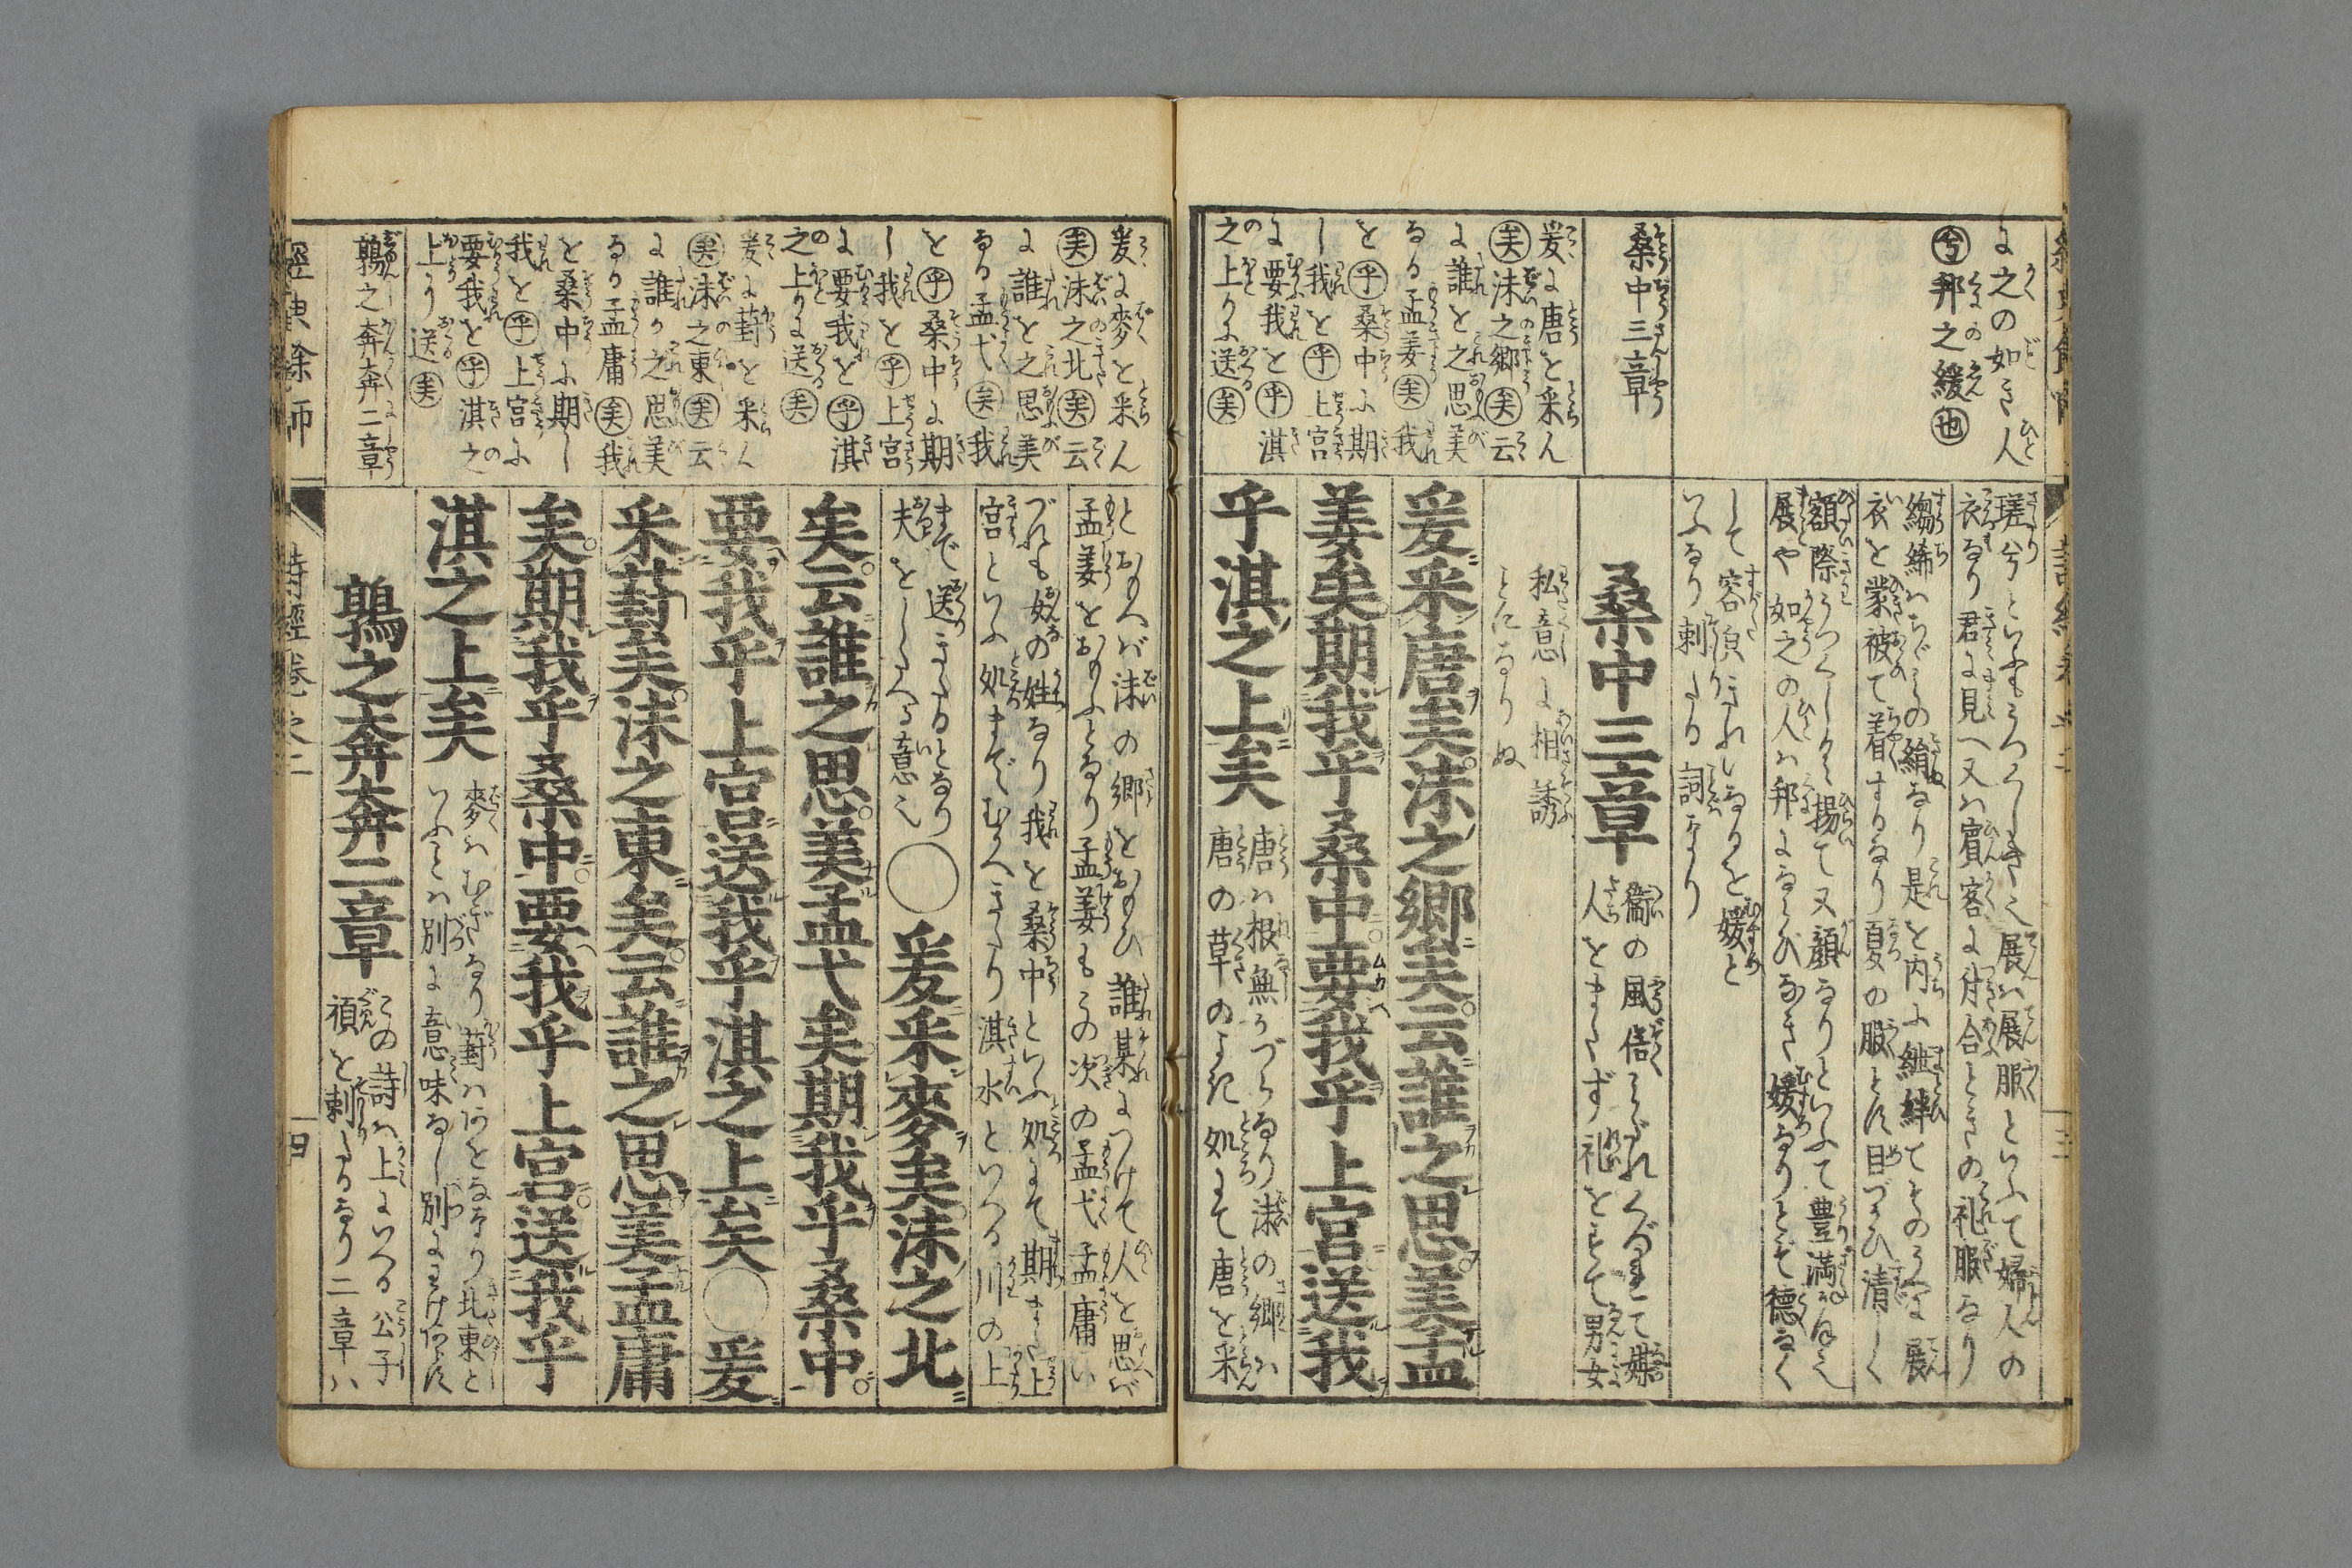 に之の如き人
兮邦之媛也
桑中三章
爰に唐を采ん
矣沬之郷矣云
に誰を之思美
なる孟姜矣我
を乎桑中に期
し我を乎上宮
に要我を乎淇
之上りに送矣
瑳兮といふもうつくしき也展は展服といふて婦人の
衣なり君に見へ又は賓客に付合ときの礼服なり
縐絺はちゞみの絹なり是を内に紲絆てそのうへに展
衣を蒙被て着するなり夏の服とに目づかひ清しく
額際うつくしく揚て又顔なりといふて豊満なる也
展や如之の人は邦にならびなき媛なりとぞ徳なく
して容貌きれいなるを媛と
いふなり刺たる詞なり
桑中三章
衞の風俗みだれくずれて媒
人をまたず礼をもて男女
私意に相誘
ことになりぬ
爰采唐矣沬之郷矣云誰之思美孟
姜矣期我乎桑中要我乎上宮送我
乎淇之上矣
唐は根無かづらなり沬の郷は
唐の草のよき処にて唐を采
爰に麥を采ん
矣沬之北矣云
に誰を之思美
なる孟弋矣我
を乎桑中に期
し我を乎上宮
に要我を乎淇
之上りに送矣
爰に葑を采ん
矣沬之東矣云
に誰か之思美
なる孟庸矣我
を桑中に期し
我を乎上宮に
要我を乎淇之
上り送矣
鶉之奔奔二章
とおもへば沬の郷をおもひ誰某につけて人を思へば
孟姜をおもふとなり孟姜もその次の孟弋孟庸い
づれも女の姓なり我を桑中といふ処にて期また上
宮といふ処までむかへきたり淇水といへる川の上
まで送きたるとなり
夫をしたへる意也〇爰采麥矣沬之北
矣云誰之思美孟弋矣期我乎桑中
要我乎上宮送我乎淇之上矣〇爰
采葑矣沬之東矣云誰之思美孟庸
矣期我乎桑中要我乎上宮送我乎
淇之上矣
麥はむぎなり葑はあをななり北東と
いふとは別に意味なし別にわけたるに
鶉之奔奔二章
この詩は上にいへる公子
頑を刺たるなり二章ハ
經典餘師
詩經卷之二
四